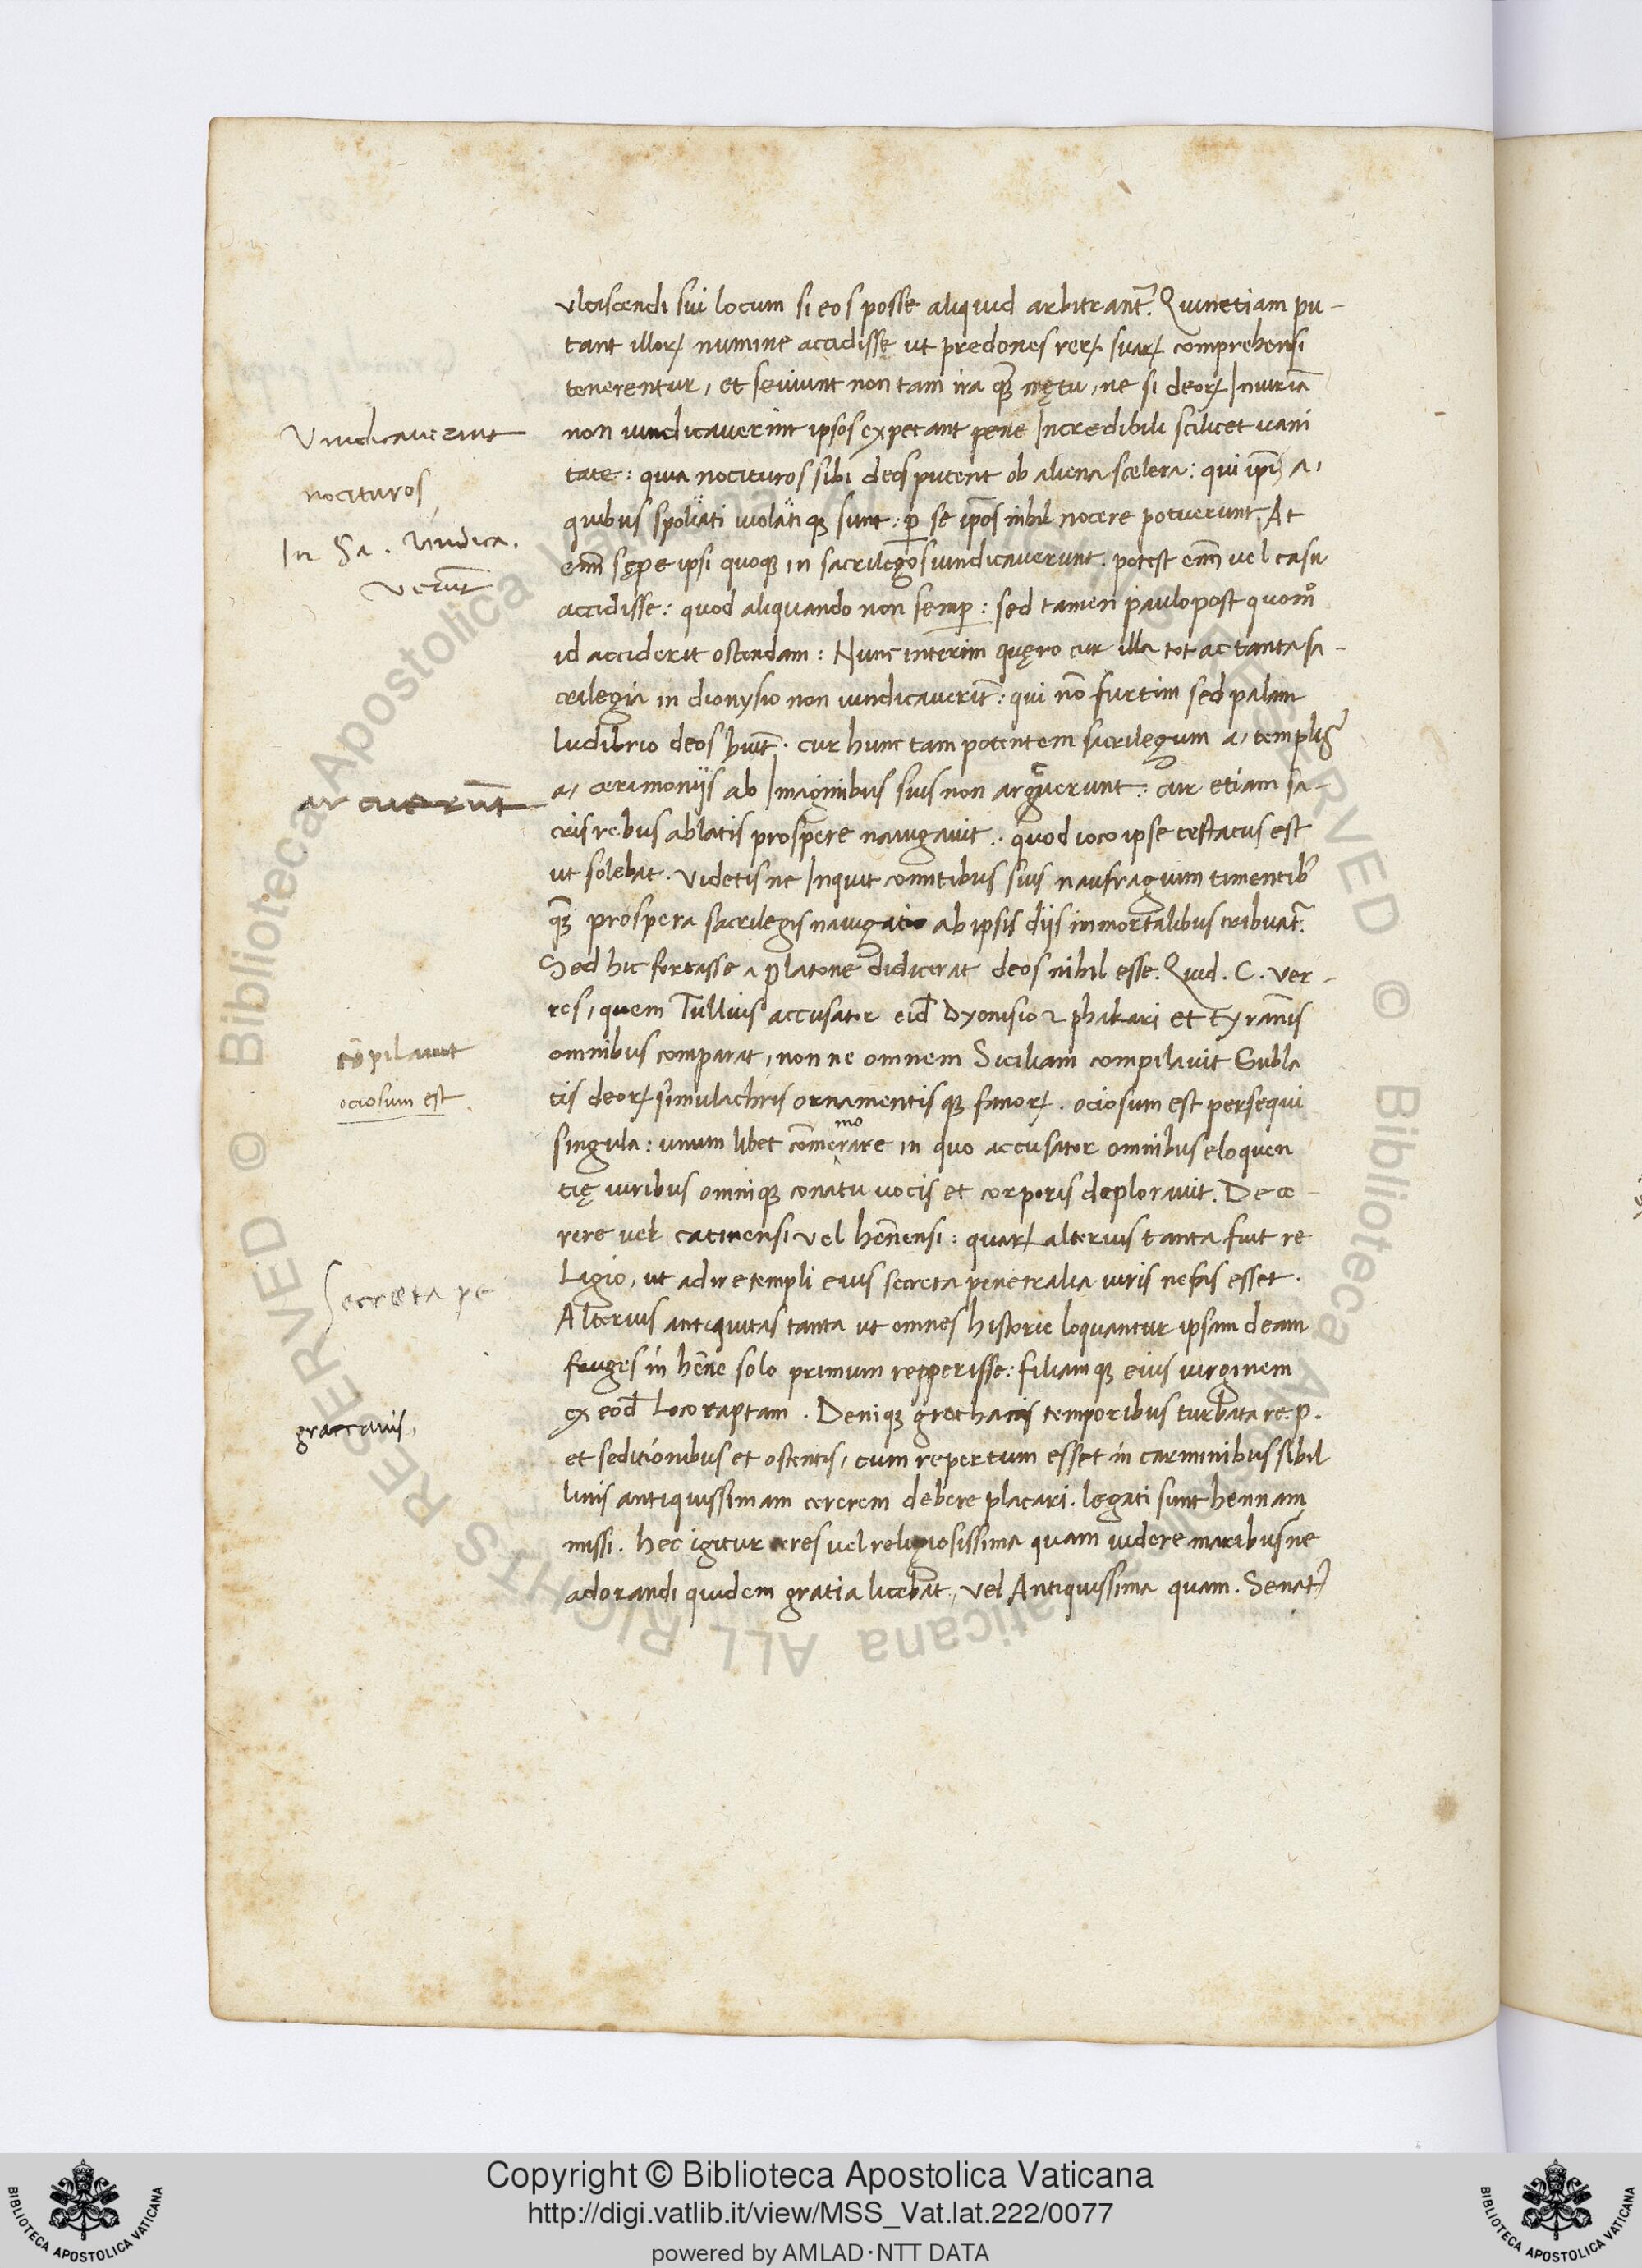 Vlciscendi sui locum si eos posse aliquid arbitrant̃. Quinetiam pu-
tant illoꝝ numine accidisse ut predones reꝝ suaꝝ comprehensi
tenerentur, et seviunt non tam ira qꝫ̃ mętu, ne si deoꝝ Iniuriã
Vindicaverint
non vindicaverint ipsos expetant pene Incredibili scilicet vani
tate: quia nocituros sibi deos putent ob aliena scelera: qui ip̃i a,
nocituros
quibus spoliati violati qꝫ sunt: ꝑ se ip̃os nihil nocere potuerunt. At
In Sa. Vindica.
verũt
em̃ sępe ipsi quoqꝫ in sacrilegos vindicaverunt. potest em̃ vel casu
accidisse: quod aliquando non semꝑ: sed tamen paulo post quom̊
id acciderit ostendam: Nunc interim quęro cur illa tot ac tanta sa-
crilegia in dionysio non vindicaverit̃: qui nõ furtim sed palam
ludibrio deos hũit. cur hunc tam potentem sacrilegum a, templis
arcuerũt
a, cerimoniis ab Imaginibus suis non arquerunt: cur etiam sa-
c
cris rebus ablatis prospere navigavit. quod ioco ipse testatus est
ut solebat. Videtis ne Inquit comitibus suis naufragium timentibꝰ
qꝫ̃ prospera sacrilegis navigatio ab ipsis diis inmortalibus tribuat̃.
Sed hic fortasse a platone didicerat deos nihil esse. Quid. C. Ver-
res, quem Tullius accusator eid̃ Dyonisio ⁊ phalari et tyrañis
cõpilavit
omnibus comparat, non ne omnem Siciliam compilavit Subla
ociosum est
tis deoꝝ simulachris ornamentis qꝫ fanoꝝ. ociosum est persequi
mo
singula: unum libet com̃erare in quo accusator omnibus eloquen
tię viribus omniqꝫ conatu vocis et corporis deploravit. De ce-
rere vel catinensi vel heñensi: quaꝝ alterius tanta fuit re
Secreta pe
Ligio, ut adire templi eius secreta penetralia viris nefas esset.
Alterius antiquitas tanta ut omnes historie loquantur ipsam deam
fruges in heñe solo primum repperisse: filiam qꝫ eius virginem
graccanis,
ex eod̃ Loco raptam. Deniqꝫ grachanis temporibus turbata re. p.
et seditionibus et ostentis, cum repertum esset in carminibus sibil
linis antiquissimam cererem debere placari. legati sunt hennam
missi. hec igitur ceres vel religiosissima quam videre maribus ne
adorandi quidem gratia licebat, Vel Antiquissima quam. Senatꝰ
Copyright © Biblioteca Apostolica Vaticana
http://digi.vatlib.it/view/MSS_Vat.lat.222/0077
powered by AMLAD·NTT DATA
BIBLIOTECA APOSTOLICA VATICANA
BIBLIOTECA APOSTOLICA VATICANA
Biblioteca Apostolica Vaticana ALL RIGHTS RESERVED ©